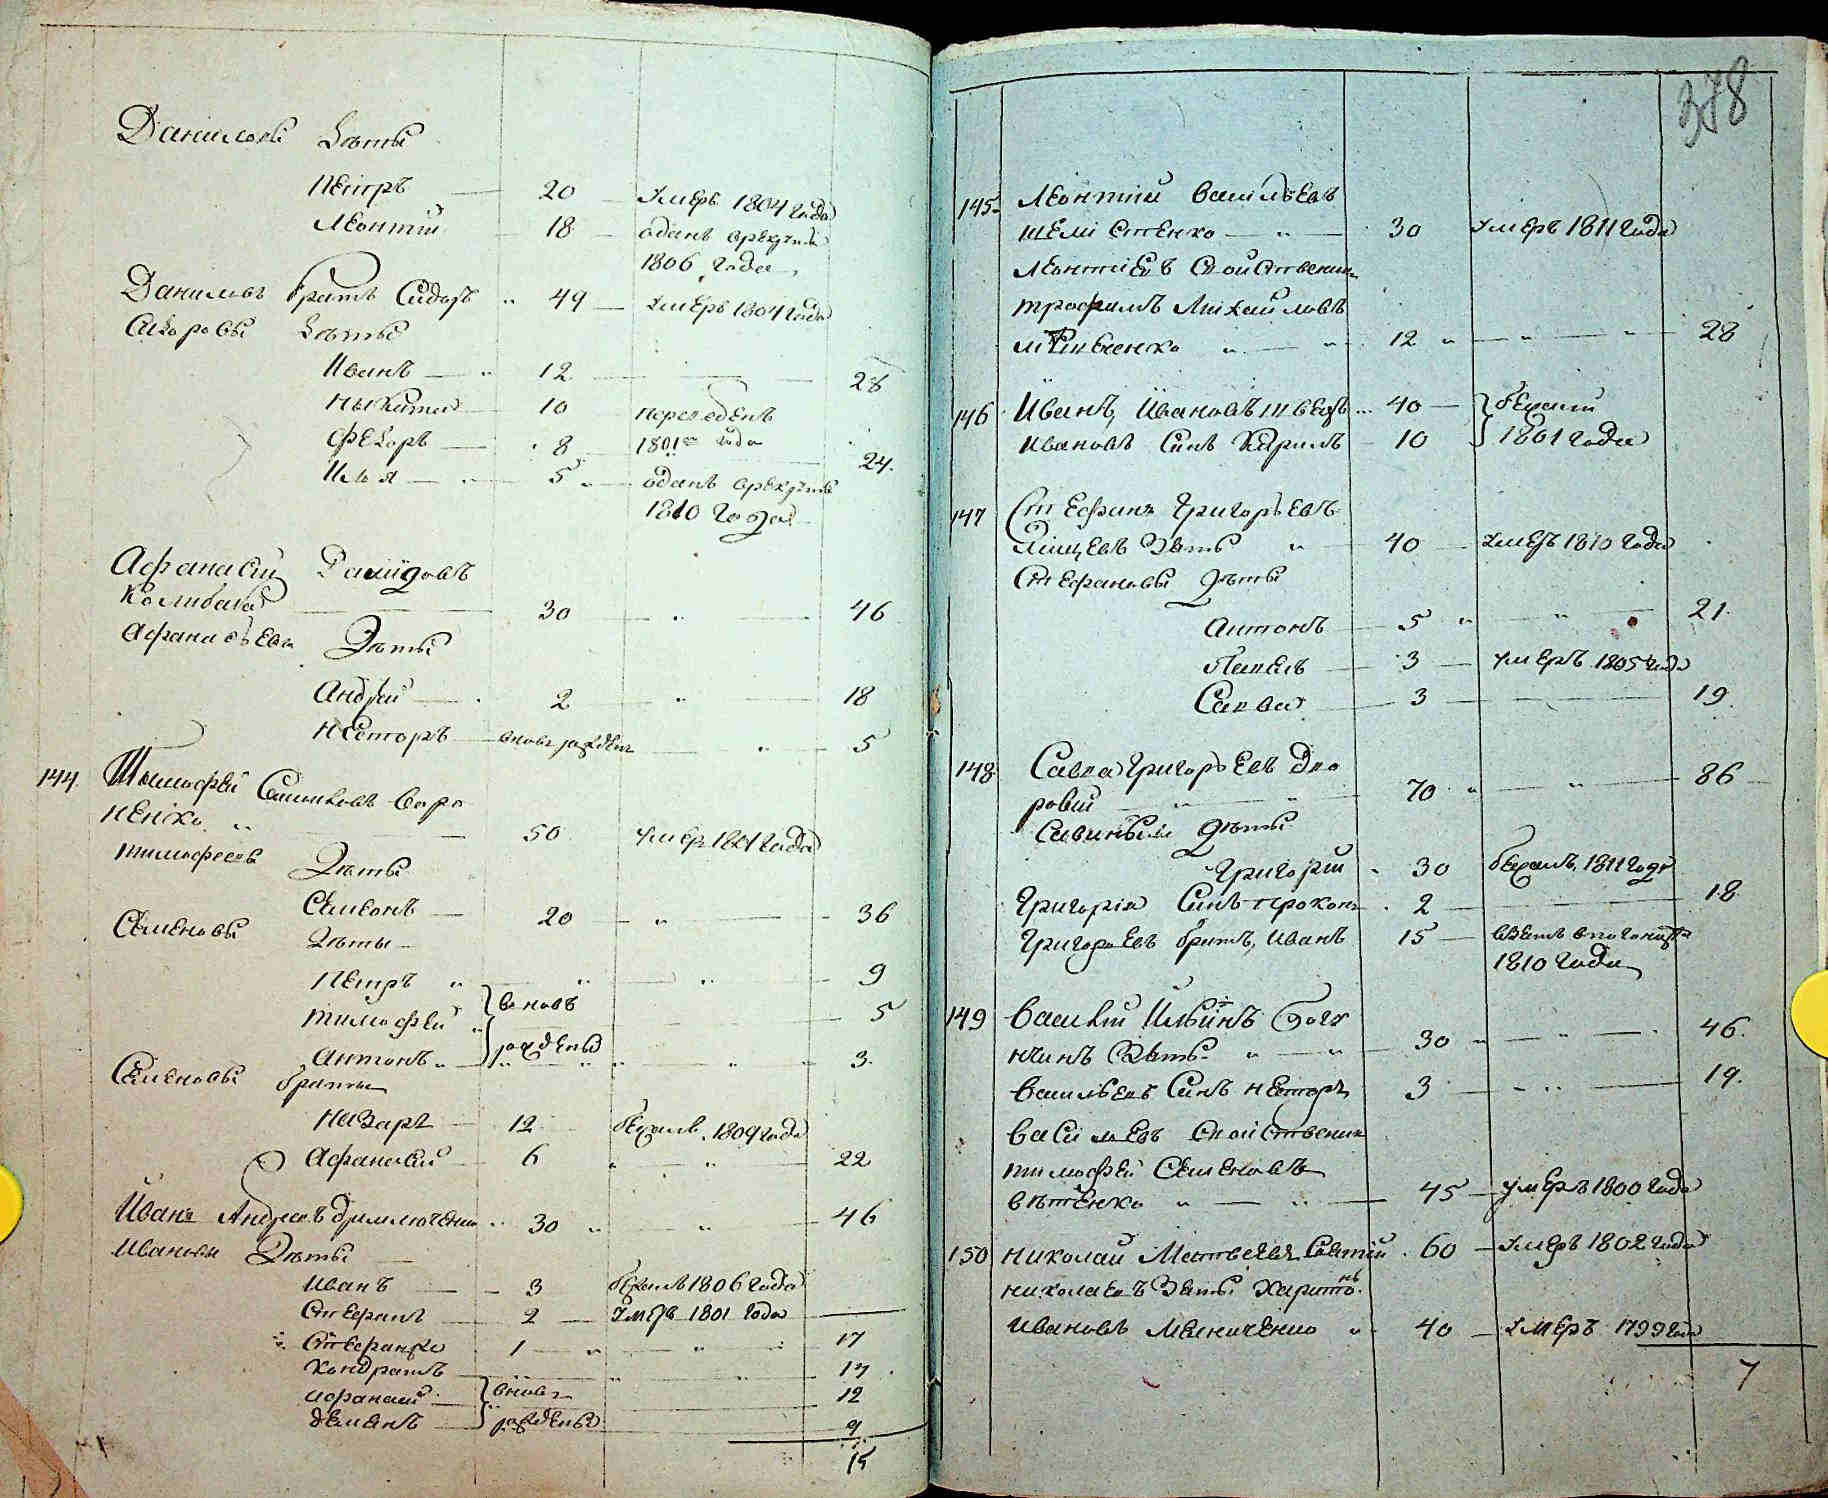 Даниловы дѣти
Петръ 20 умеръ 1804 года
Леонтiй 18 отданъ врекруты
1806 года
Даниловъ братъ Сидоръ 49 умеръ 1804 года
Сидоровы дѣти
Иванъ 12 28
Никита 10 переведенъ
Федоръ 8 1801го года 24
Илья 5 отданъ врекруты
1810 года
Афанасiй
30 46
Афанасьева дѣти
Андрей 2 18
Несторъ вновь рожденъ 5
144 Тимофей Семионовъ Воро
ненко 50 умеръ 1801 года
Тимофеевы дѣти
Семионъ 20 36
Семеновы дѣти
Петръ 9
Тимофей вновь 5
Антонъ рождены 3
Семеновы братья
Назаръ 12 бежалъ 1809 года
Афанасiй 6 22
Иванъ Андреевъ 30 46
Ивановы дѣти
Иванъ 3 бежалъ 1806 года
Стефанъ 2 умеръ 1801 года
Стефанъ же 1 17
Кондратъ 14
Афанасiй вновь 12
Демьянъ рождены 9
15
378
145 Леонтiй Васильевъ
Шелестенко 30 умеръ 1811 года
Леонтiевъ свойственник
Трофимъ Михайловъ
12 28
146 Иванъ Ивановъ Швецъ 40 бежали
Ивановъ синъ Кирилъ 10 1801 года
147 Стефанъ Григорьевъ
зять 40 умеръ 1810 года
Стефановы дѣти
Антонъ 5 21
Павелъ 3 умеръ 1805 года
Савва 3 19
148 Савва Григорьевъ Дво
ровий 70 86
Савины дѣти
Григорiй 30 бежалъ 1811 года
Григорiя синъ Прокопъ 2 18
Григорьевъ братъ Иванъ 15
1810 года
149 Василiй Ильинъ
зять 30 46
Васильевъ синъ Несторъ 3 19
Васильевъ свойственик
Тимофей Семеновъ
45 умеръ 1800 года
150 Николай Матвеевъ 60 умеръ 1802 года
Николаевъ зять Харитонъ
Ивановъ 40 умеръ 1799 года
7